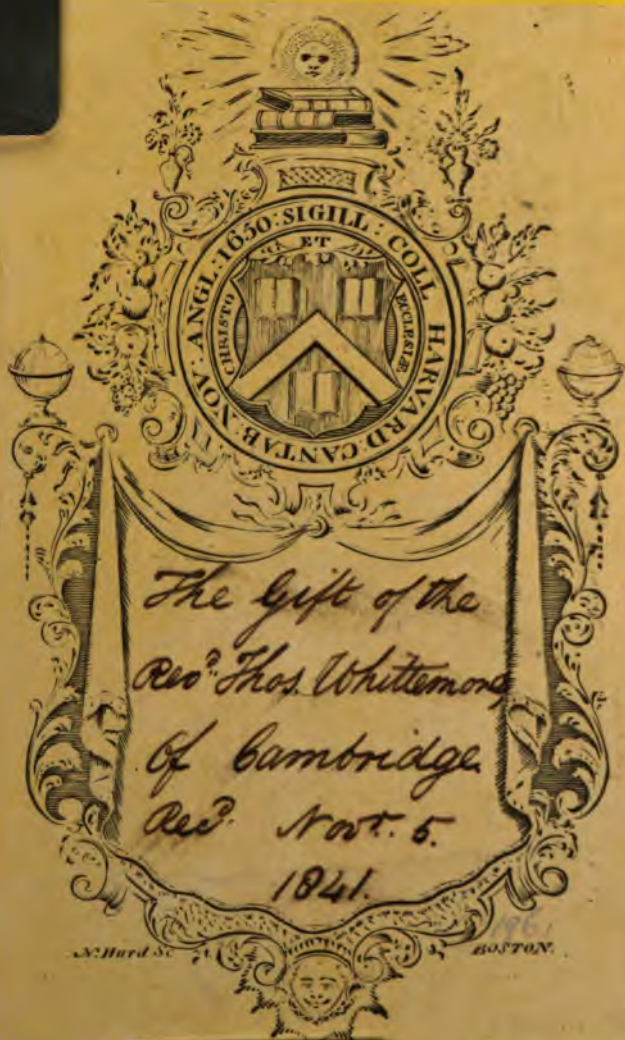 SIGILL : COLL HARVARD : CANTAB : NOV : ANGL : 1650 :
ET
CHRISTO
ECCLESIÆ
The Gift of the
Revd. Thos. Whittemore
Of Cambridge
Recd. Novr. 5.
1841.
N. Hurd Sc
BOSTON.